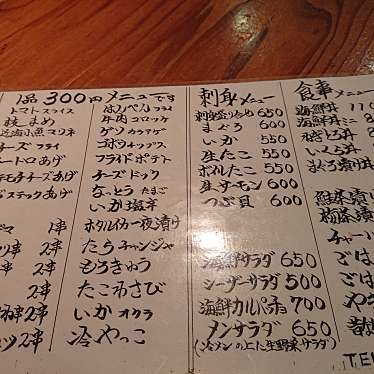 1品 300円 メニューです
トマトスライス
枝まめ
近海小魚マリネ
チーズフライ
チーズあげ
スティックあげ
1串
2串
2串
2串
2串
2串
はんぺんフライ
牛肉コロッケ
ゲソカラアゲ
ゴボウチップス
フライドポテト
チーズドック
なっとうたまご
いか塩辛
ホタルイカ一夜漬け
たらチャンジャ
もろきゅう
たこわさび
いかオクラ
冷やっこ
刺身メニュー
刺身盛り合せ 650
まぐろ 600
いか 550
生たこ 550
ボイルたこ 550
生サーモン 600
つぶ貝 600
海鮮サラダ 650
シーザーサラダ 500
海鮮カルパチョ 700
メンサラダ 650
(冷メンの上に生野菜サラダ)
食事メニュー
海鮮丼 110
海鮮丼ミニ 8
ねぎとろ丼
いくら丼
まぐろ漬け丼
鮭茶漬け
梅茶漬け
チャー
ごは
ごは
やき
TEL